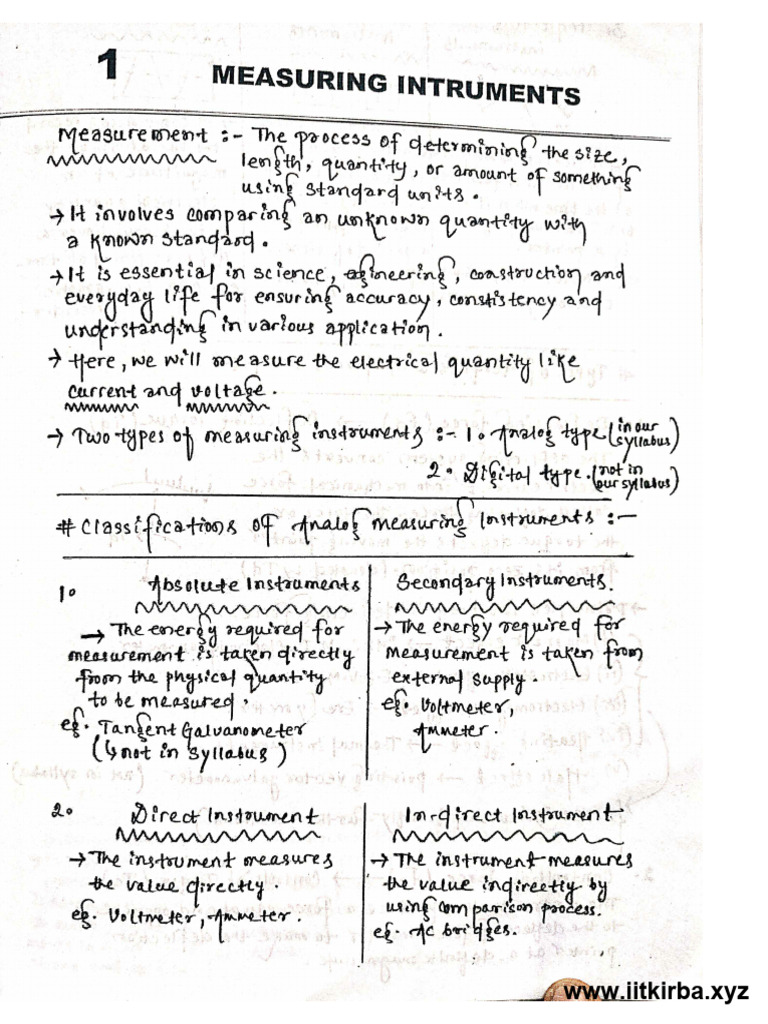 1 MEASURING INTRUMENTS
Measurement :- The process of determining the size,
length, quantity, or amount of something
using standard units.
→ It involves comparing an unknown quantity with
a known standard.
→ It is essential in science, egineering, construction and
everyday life for ensuring accuracy, constistency and
understanding in various application.
→ Here, we will measure the electrical quantity like
current and voltage.
→ Two types of measuring instruments :- 1. Analog type (in our syllabus)
2. Digital type (not in our syllabus)
# Classifications of Analog measuring Instruments :-
1. Absolute Instruments
→ The energy required for
measurement is taken directly
from the physical quantity
to be measured.
eg. Tangent Galvanometer
(↳ not in syllabus)
Secondary Instruments.
→ The energy required for
measurement is taken from
external supply.
eg. Voltmeter,
Ammeter.
2. Direct Instrument
→ The instrument measures
the value directly.
eg. Voltmeter, Ammeter.
In-direct Instrument
→ The instrument measures
the value indireetly by
using comparison process.
eg. AC bridges.
www.iitkirba.xyz